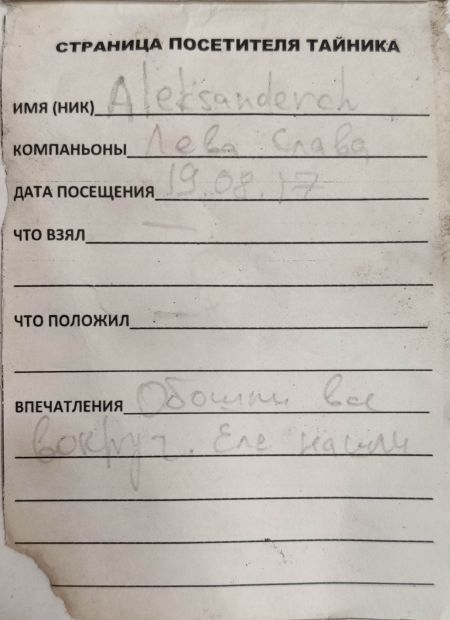 СТРАНИЦА ПОСЕТИТЕЛЯ ТАЙНИКА
ИМЯ (НИК) Aleksanderch
КОМПАНЬОНЫ Лева Слава
ДАТА ПОСЕЩЕНИЯ 19.08.17
ЧТО ВЗЯЛ —
ЧТО ПОЛОЖИЛ —
ВПЕЧАТЛЕНИЯ Обошли все
вокруг. Еле нашли